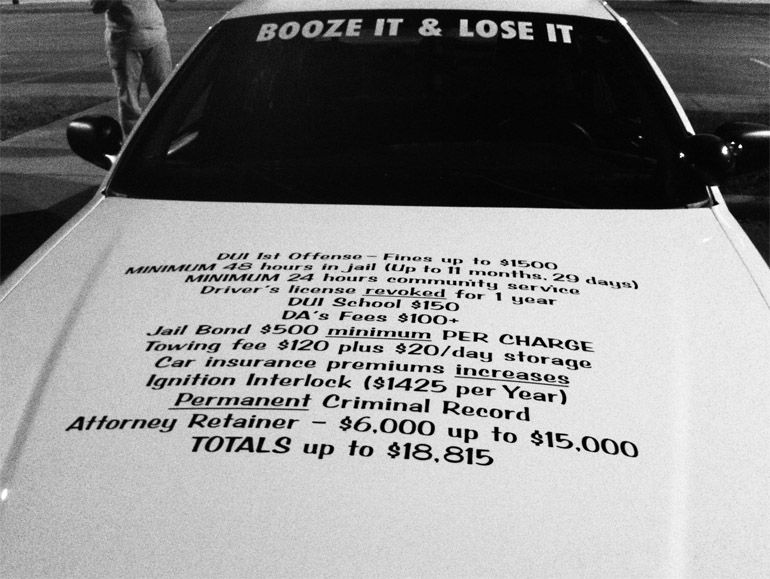 BOOZE IT & LOSE IT
DUI 1st Offense - Fines up to $1500
MINIMUM 48 hours in jail (Up to 11 months, 29 days)
MINIMUM 24 hours community service
Driver's license revoked for 1 year
DUI School $150
DA's Fees $100+
Jail Bond $500 minimum PER CHARGE
Towing fee $120 plus $20/day storage
Car insurance premiums increases
Ignition Interlock ($1425 per Year)
Permanent Criminal Record
Attorney Retainer - $6,000 up to $15,000
TOTALS up to $18,815